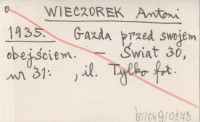 WIECZOREK Antoni
1935. Gazda przed swojem
obejściem. — Świat 30,
nr 31: , il. Tylko fot.